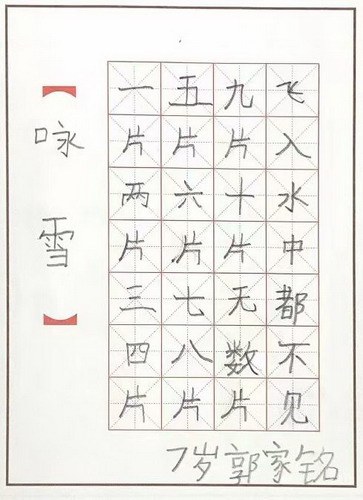 【咏雪】
一片两片三四片
五片六片七八片
九片十片无数片
飞入水中都不见
7岁郭家铭